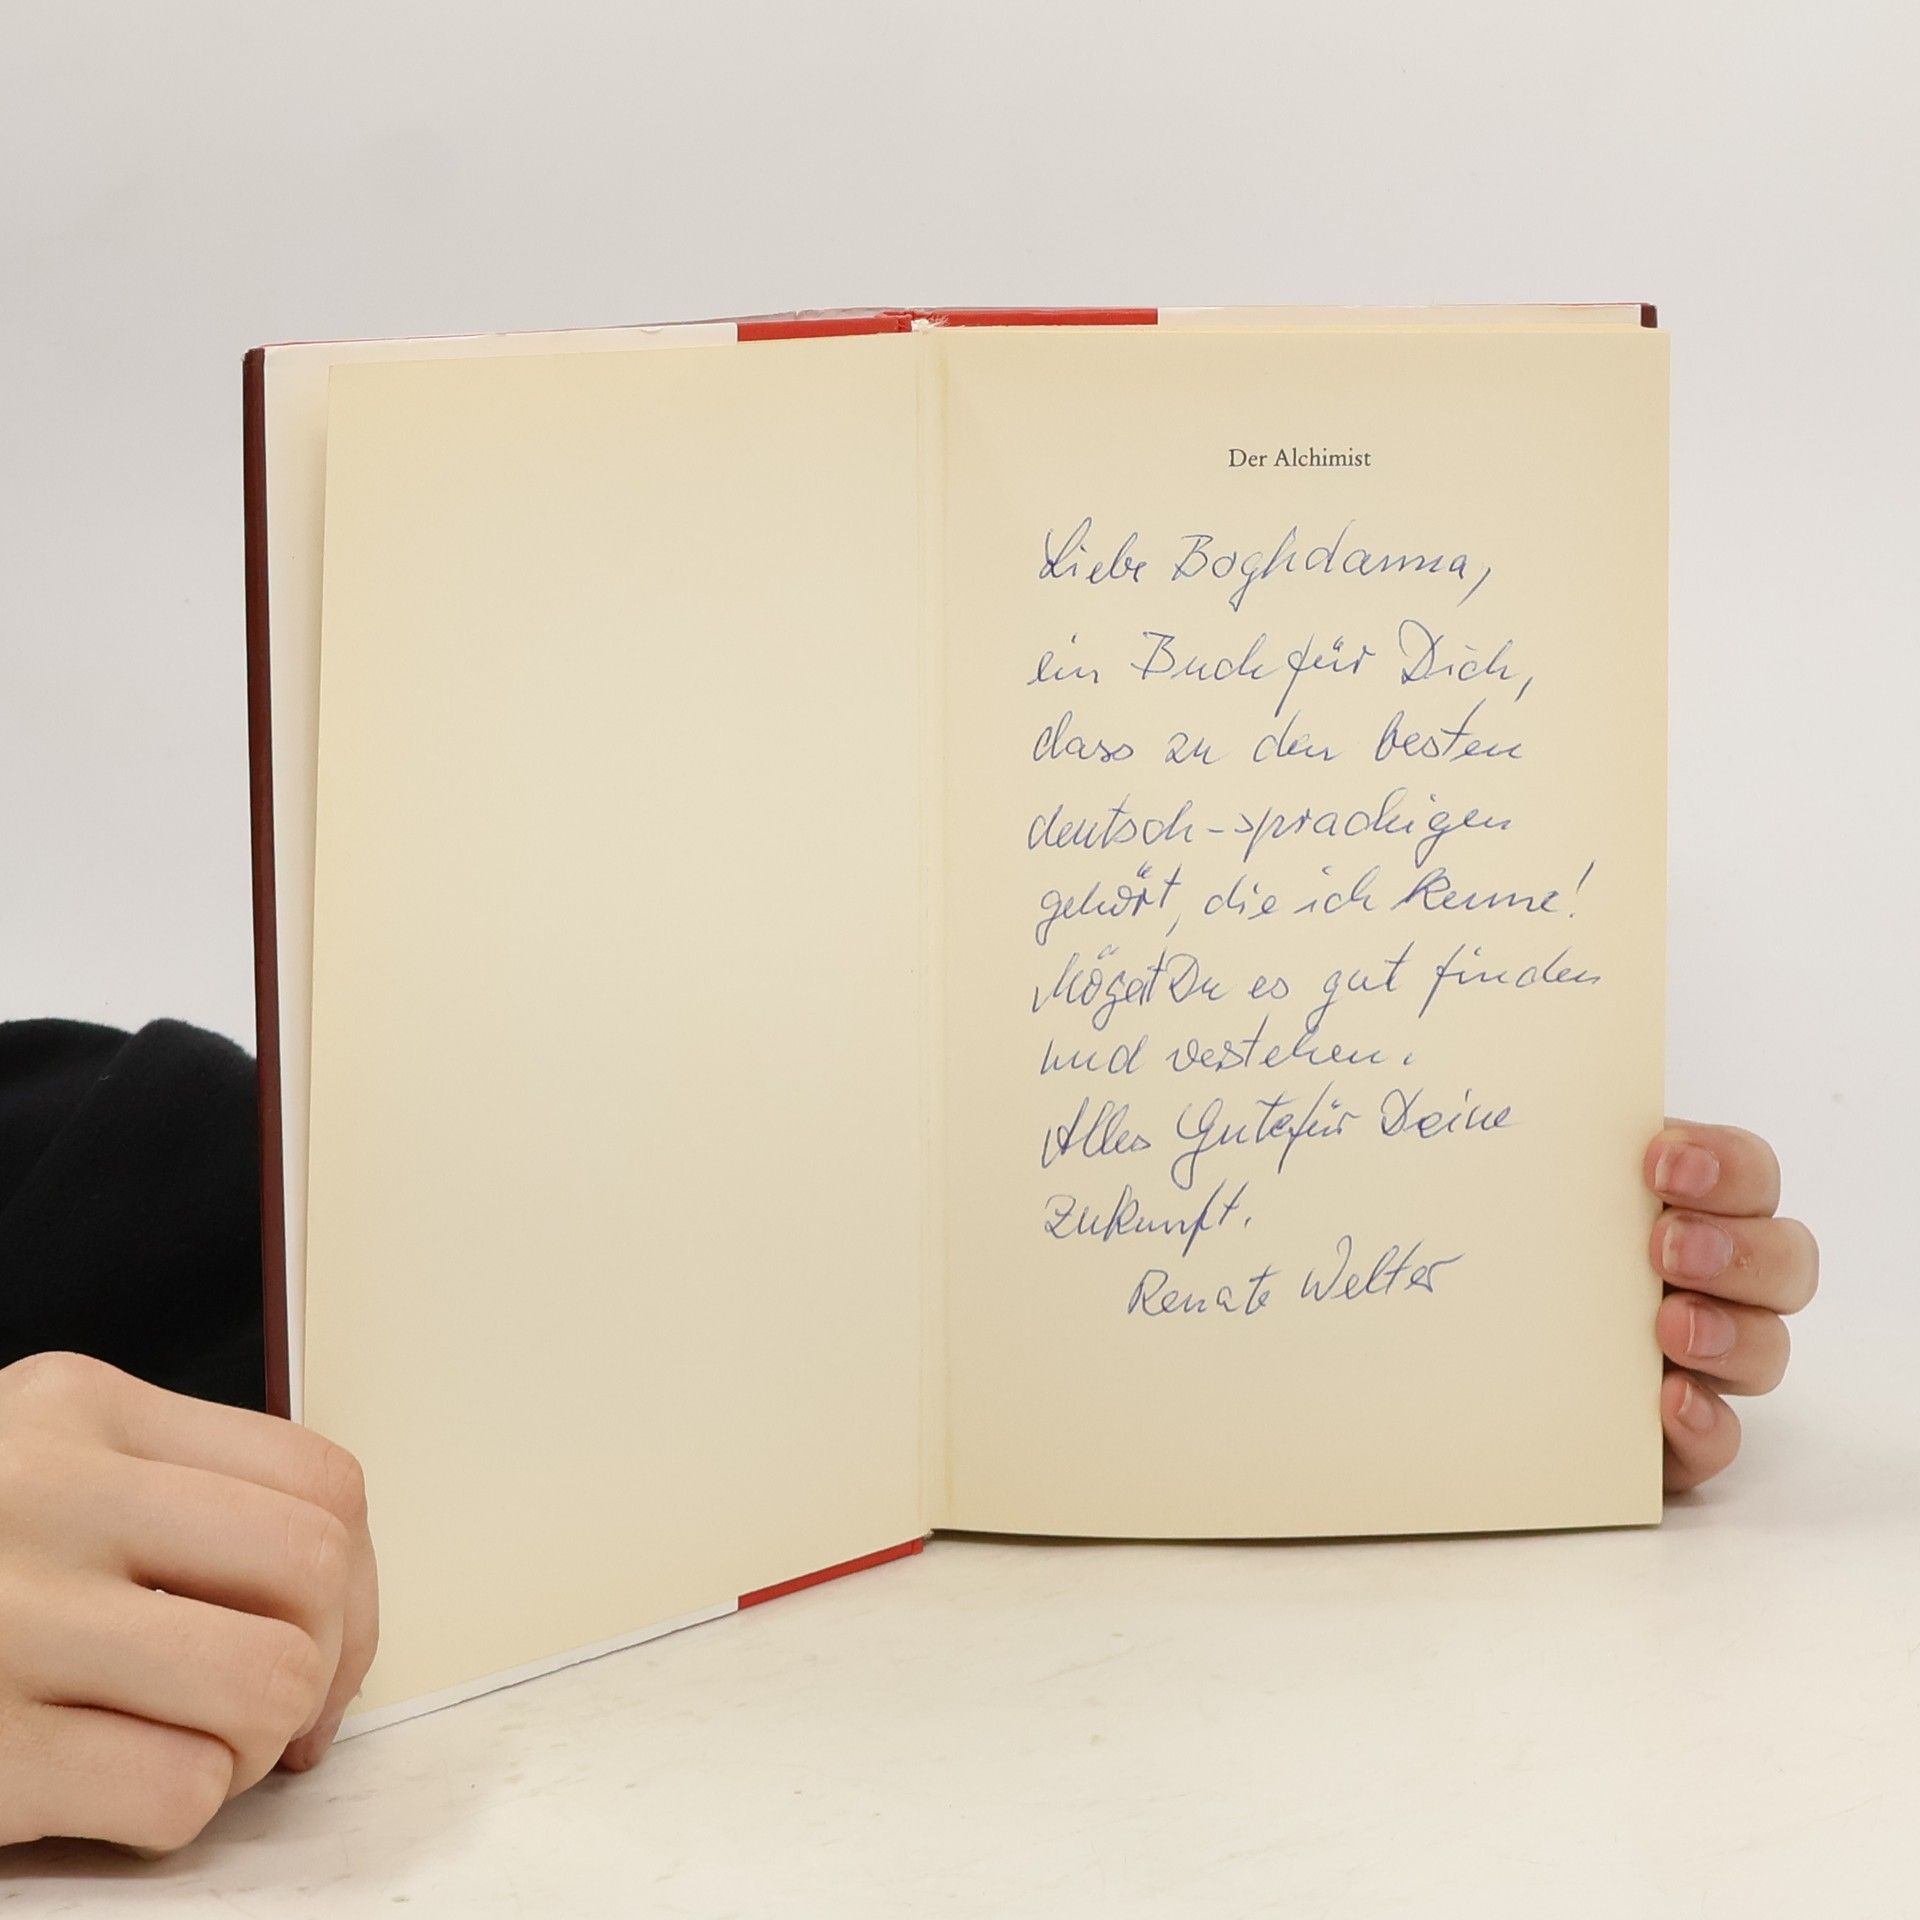 Der Alchimist
Liebe Boghdanna,
ein Buch für Dich,
dass zu den besten
deutsch-sprachigen
gehört, die ich kenne!
Mögest Du es gut finden
und verstehen.
Alles Gute für Deine
Zukunft.
Renate Welter